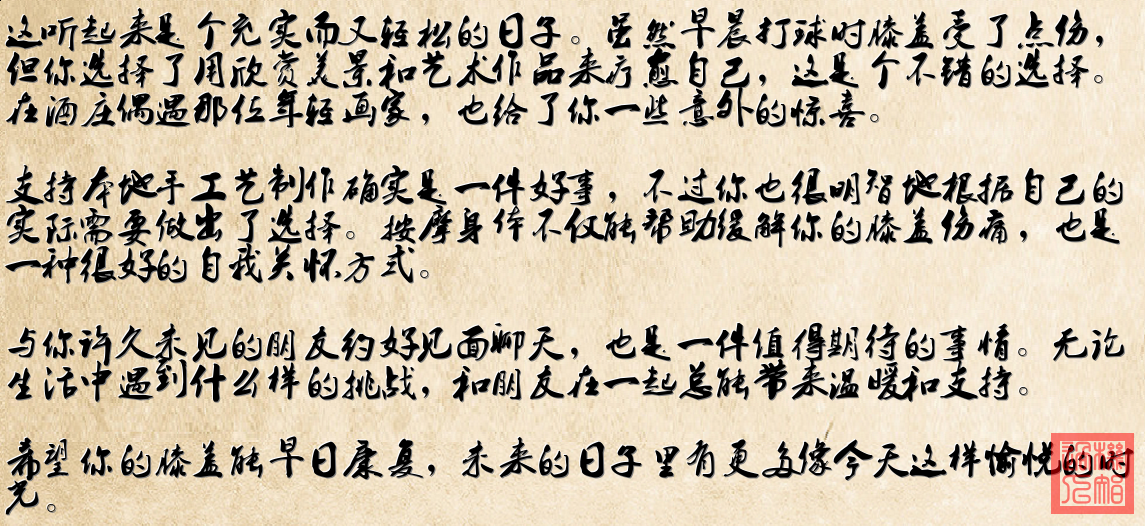 这听起来是个充实而又轻松的日子。虽然早晨打球时膝盖受了点伤，
但你选择了用欣赏美景和艺术作品来疗愈自己，这是个不错的选择。
在酒庄偶遇那位年轻画家，也给了你一些意外的惊喜。
支持本地手工艺制作确实是一件好事，不过你也很明智地根据自己的
实际需要做出了选择。按摩身体不仅能帮助缓解你的膝盖伤痛，也是
一种很好的自我关怀方式。
与你许久未见的朋友约好见面聊天，也是一件值得期待的事情。无论
生活中遇到什么样的挑战，和朋友在一起总能带来温暖和支持。
希望你的膝盖能早日康复，未来的日子里有更多像今天这样愉悦的时
光。